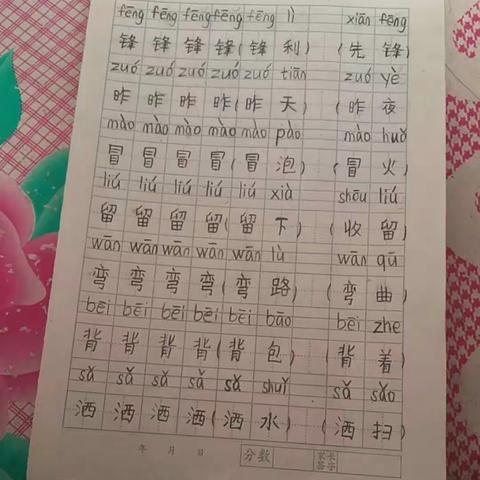 fēng fēng fēng fēng fēng lì xiān fēng
锋 锋 锋 锋 (锋 利) (先 锋)
zuó zuó zuó zuó zuó tiān zuó yè
昨 昨 昨 昨 (昨 天) (昨 夜)
mào mào mào mào mào pào mào huǒ
冒 冒 冒 冒 (冒 泡) (冒 火)
liú liú liú liú liú xià shōu liú
留 留 留 留 (留 下) (收 留)
wān wān wān wān wān lù wān qū
弯 弯 弯 弯 (弯 路) (弯 曲)
bēi bēi bēi bēi bēi bāo bēi zhe
背 背 背 背 (背 包) (背 着)
sǎ sǎ sǎ sǎ sǎ shuǐ sǎ sǎo
洒 洒 洒 洒 (洒 水) (洒 扫)
年 月 日 分数 家长签字